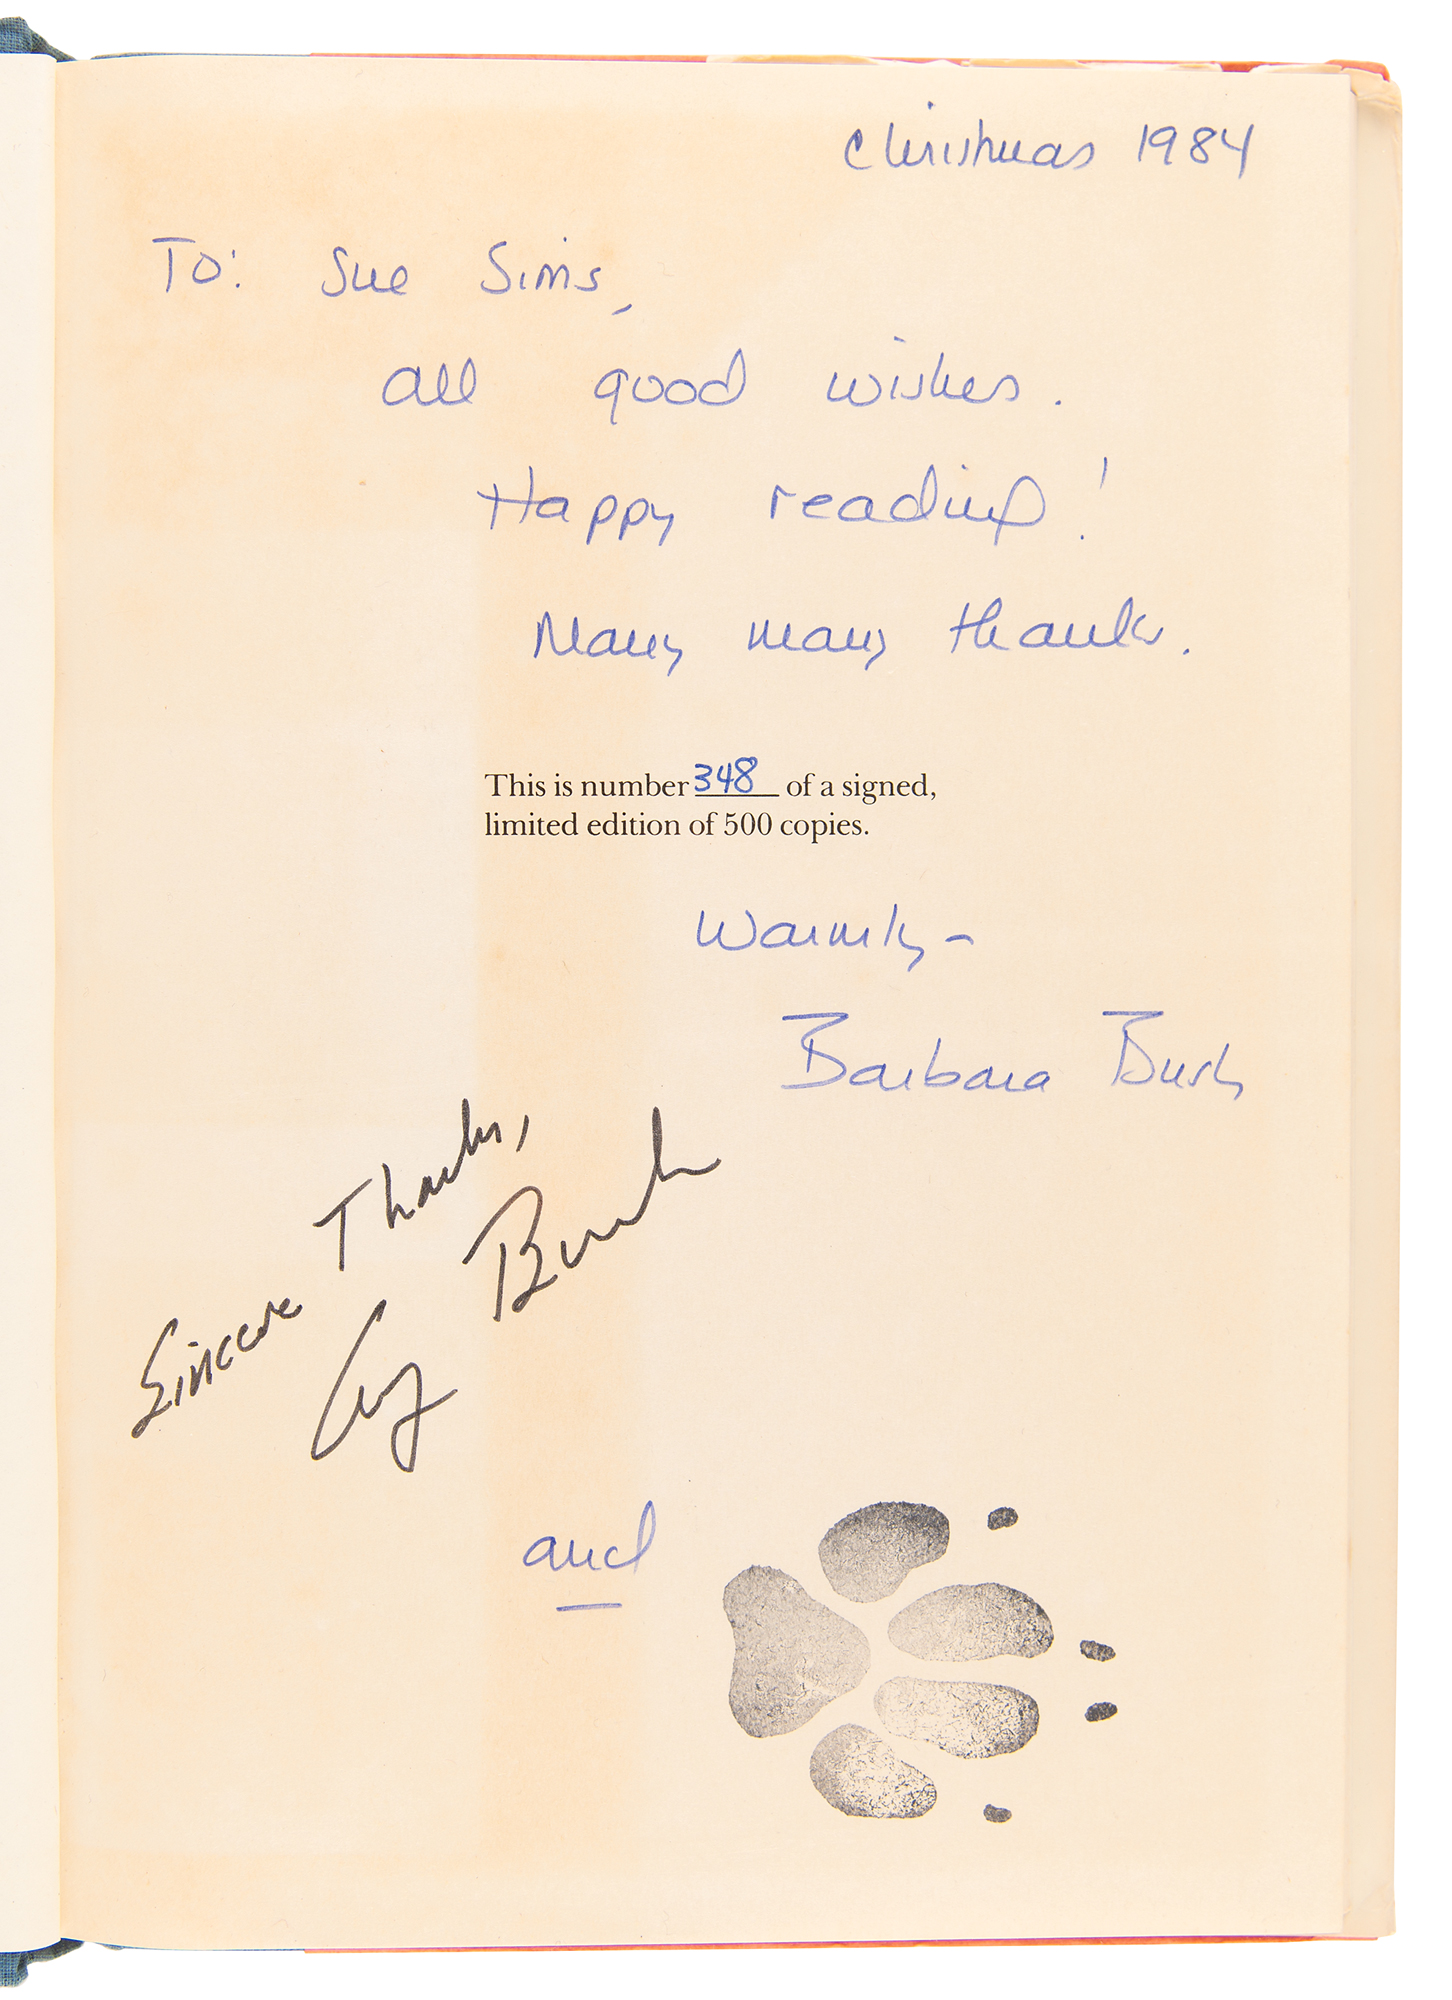 Christmas 1984
To: Sue Sims,
all good wishes.
Happy reading!
Many many thanks.
This is number 348 of a signed,
limited edition of 500 copies.
Warmly -
Barbara Bush
Sincere Thanks,
Bush
and